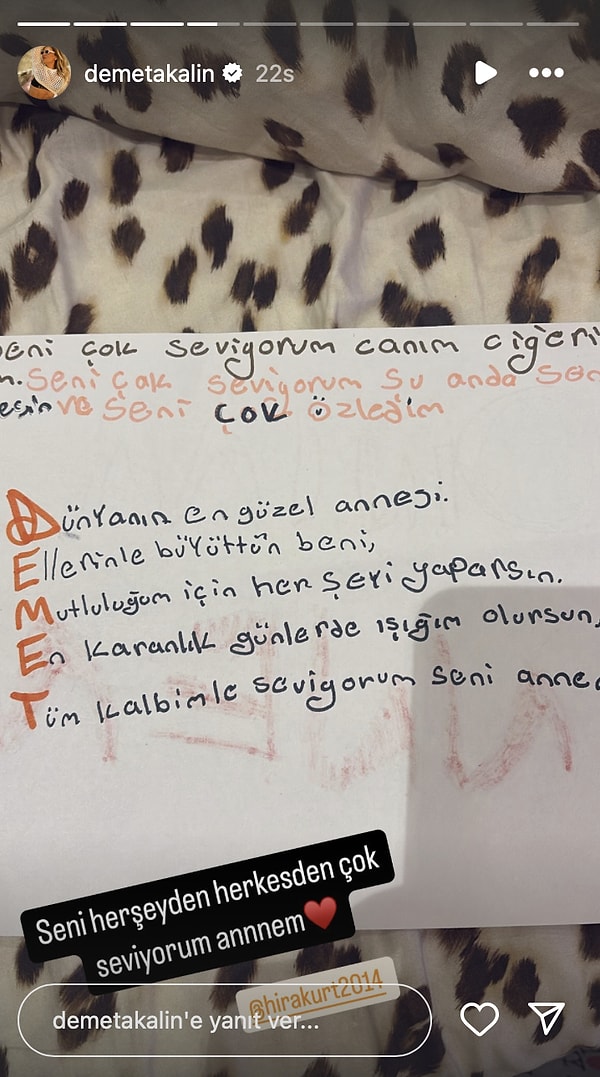 demetakalin 22s
seni çok seviyorum canım ciğeri
m. Seni çok seviyorum şu anda sen
esin ve seni çok özledim
Dünyanın en güzel annesi.
Ellerinle büyüttün beni,
Mutluluğum için her şeyi yaparsın.
En karanlık günlerde ışığım olursun,
Tüm kalbimle seviyorum seni anne
Seni herşeyden herkesden çok
seviyorum annnem❤️
@hirakurt2014
demetakalin'e yanıt ver...